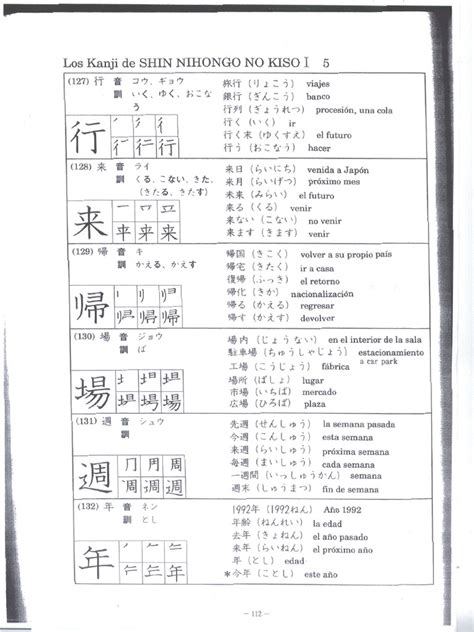 Los Kanji de SHIN NIHONGO NO KISO I 5
(127) 行 音 コウ、ギョウ
訓 いく、ゆく、おこな
う
行
旅行（りょこう） viajes
銀行（ぎんこう） banco
行列（ぎょうれつ） procesión, una cola
行く（いく） ir
行く末（ゆくすえ） el futuro
行う（おこなう） hacer
(128) 来 音 ライ
訓 くる、こない、きた、
（きたる、きたす）
来
来日（らいにち） venida a Japón
来月（らいげつ） próximo mes
未来（みらい） el futuro
来る（くる） venir
来ない（こない） no venir
来ます（きます） venir
(129) 帰 音 キ
訓 かえる、かえす
帰
帰国（きこく） volver a su propio país
帰宅（きたく） ir a casa
復帰（ふっき） el retorno
帰化（きか） nacionalización
帰る（かえる） regresar
帰す（かえす） devolver
(130) 場 音 ジョウ
訓 ば
場
場内（じょうない） en el interior de la sala
駐車場（ちゅうしゃじょう） estacionamiento
a car park
工場（こうじょう） fábrica
場所（ばしょ） lugar
市場（いちば） mercado
広場（ひろば） plaza
(131) 週 音 シュウ
訓
週
先週（せんしゅう） la semana pasada
今週（こんしゅう） esta semana
来週（らいしゅう） próxima semana
毎週（まいしゅう） cada semana
一週間（いっしゅうかん） una semana
週末（しゅうまつ） fin de semana
(132) 年 音 ネン
訓 とし
年
1992年（1992ねん） Año 1992
年齢（ねんれい） la edad
去年（きょねん） el año pasado
来年（らいねん） el próximo año
年（とし） edad
*今年（ことし） este año
— 112 —